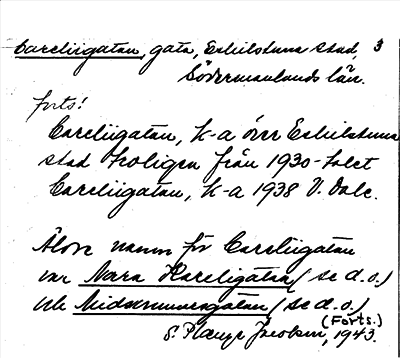 Careliigatan, gata, Eskilstuna stad, 3
Södermanlands län.
forts!
Careliigatan, K-a över Eskilstuna
stad troligen från 1930-talet
Careliigatan, K-a 1938 V. Dale.
Äldre namn för Careliigatan
var Norra Kareligatan (se d.o.)
och Midsommarsgatan (se d.o.)
(Forts.)
S. Plauge Jacobson, 1943.